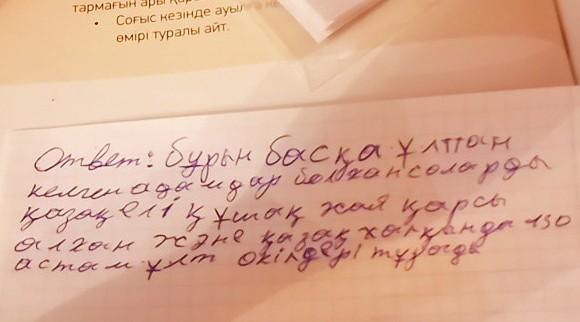 тармағын ары қара
• Соғыс кезінде ауыл
өмірі туралы айт.
Ответ: бұрын басқа ұлттан
келген адамдар болхан соларды
қазақ елі құшақ жая қарсы
алхан және қазақ халқанда 130
астам ұлт өкілдері тұрады